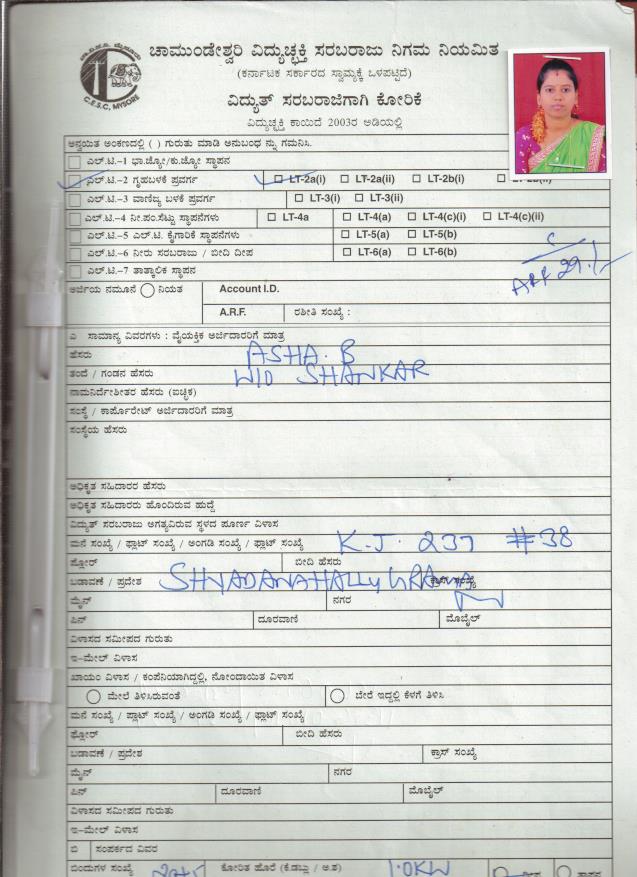 ಚಾಮುಂಡೇಶ್ವರಿ ವಿದ್ಯುಚ್ಛಕ್ತಿ ಸರಬರಾಜು ನಿಗಮ ನಿಯಮಿತ
(ಕರ್ನಾಟಕ ಸರ್ಕಾರದ ಸ್ವಾಮ್ಯಕ್ಕೆ ಒಳಪಟ್ಟಿದೆ)
C.E.S.C, MYSORE
ವಿದ್ಯುತ್ ಸರಬರಾಜಿಗಾಗಿ ಕೋರಿಕೆ
ವಿದ್ಯುಚ್ಛಕ್ತಿ ಕಾಯಿದೆ 2003ರ ಅಡಿಯಲ್ಲಿ
ಅನ್ವಯಿತ ಅಂಕಣದಲ್ಲಿ ( ) ಗುರುತು ಮಾಡಿ ಅನುಬಂಧ ನ್ನು ಗಮನಿಸಿ.
ಎಲ್.ಟಿ.-1 ಭಾ.ಜ್ಯೋ/ಕು.ಜ್ಯೋ ಸ್ಥಾಪನ
ಎಲ್.ಟಿ.-2 ಗೃಹಬಳಕೆ ಪ್ರವರ್ಗ LT-2a(i) LT-2a(ii) LT-2b(i)
ಎಲ್.ಟಿ.-3 ವಾಣಿಜ್ಯ ಬಳಕೆ ಪ್ರವರ್ಗ LT-3(i) LT-3(ii)
ಎಲ್.ಟಿ.-4 ನೀ.ಪಂ.ಸೆಟ್ಟು ಸ್ಥಾಪನಗಳು LT-4a LT-4(a) LT-4(c)(i) LT-4(c)(ii)
ಎಲ್.ಟಿ.-5 ಎಲ್.ಟಿ ಕೈಗಾರಿಕೆ ಸ್ಥಾಪನಗಳು LT-5(a) LT-5(b)
ಎಲ್.ಟಿ.-6 ನೀರು ಸರಬರಾಜು / ಬೀದಿ ದೀಪ LT-6(a) LT-6(b)
ಎಲ್.ಟಿ.-7 ತಾತ್ಕಾಲಿಕ ಸ್ಥಾಪನ
ಅರ್ಜಿಯ ನಮೂನೆ ನಿಯತ Account I.D.
A.R.F. ರಶೀತಿ ಸಂಖ್ಯೆ :
ಎ ಸಾಮಾನ್ಯ ವಿವರಗಳು : ವೈಯಕ್ತಿಕ ಅರ್ಜಿದಾರರಿಗೆ ಮಾತ್ರ
ಹೆಸರು ASHA. B
ತಂದೆ / ಗಂಡನ ಹೆಸರು W/O SHANKAR
ನಾಮನಿರ್ದೇಶೀತರ ಹೆಸರು (ಐಚ್ಛಿಕ)
ಸಂಸ್ಥೆ / ಕಾರ್ಪೊರೇಟ್ ಅರ್ಜಿದಾರರಿಗೆ ಮಾತ್ರ
ಸಂಸ್ಥೆಯ ಹೆಸರು
ಅಧಿಕೃತ ಸಹಿದಾರರ ಹೆಸರು
ಅಧಿಕೃತ ಸಹಿದಾರರು ಹೊಂದಿರುವ ಹುದ್ದೆ
ವಿದ್ಯುತ್ ಸರಬರಾಜು ಅಗತ್ಯವಿರುವ ಸ್ಥಳದ ಪೂರ್ಣ ವಿಳಾಸ
ಮನೆ ಸಂಖ್ಯೆ / ಫ್ಲಾಟ್ ಸಂಖ್ಯೆ / ಅಂಗಡಿ ಸಂಖ್ಯೆ / ಫ್ಲಾಟ್ ಸಂಖ್ಯೆ K.J. 237 #38
ಫ್ಲೋರ್ ಬೀದಿ ಹೆಸರು
ಬಡಾವಣೆ / ಪ್ರದೇಶ SHYADANAHALLY GRAMA
ಮೈನ್ ನಗರ
ಪಿನ್ ದೂರವಾಣಿ ಮೊಬೈಲ್
ವಿಳಾಸದ ಸಮೀಪದ ಗುರುತು
ಇ-ಮೇಲ್ ವಿಳಾಸ
ಖಾಯಂ ವಿಳಾಸ / ಕಂಪೆನಿಯಾಗಿದ್ದಲ್ಲಿ, ನೋಂದಾಯಿತ ವಿಳಾಸ
ಮೇಲೆ ತಿಳಿಸಿರುವಂತೆ ಬೇರೆ ಇದ್ದಲ್ಲಿ ಕೆಳಗೆ ತಿಳಿಸಿ
ಮನೆ ಸಂಖ್ಯೆ / ಪ್ಲಾಟ್ ಸಂಖ್ಯೆ / ಅಂಗಡಿ ಸಂಖ್ಯೆ / ಫ್ಲಾಟ್ ಸಂಖ್ಯೆ
ಫ್ಲೋರ್ ಬೀದಿ ಹೆಸರು
ಬಡಾವಣೆ / ಪ್ರದೇಶ ಕ್ರಾಸ್ ಸಂಖ್ಯೆ
ಮೈನ್ ನಗರ
ಪಿನ್ ದೂರವಾಣಿ ಮೊಬೈಲ್
ವಿಳಾಸದ ಸಮೀಪದ ಗುರುತು
ಇ-ಮೇಲ್ ವಿಳಾಸ
ಬಿ ಸಂಪರ್ಕದ ವಿವರ
ಬಿಂದುಗಳ ಸಂಖ್ಯೆ ಕೋರಿತ ಹೊರೆ (ಕೆ.ಡಬ್ಲು / ಅ.ಶ) 1.0KW